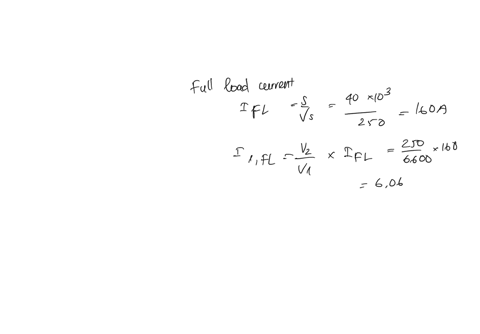 Full load current
I FL = S/Vs = 40 × 10³ / 250 = 160A
I 1,FL = V2/V1 × I FL = 250/6.600 × 160
= 6,06